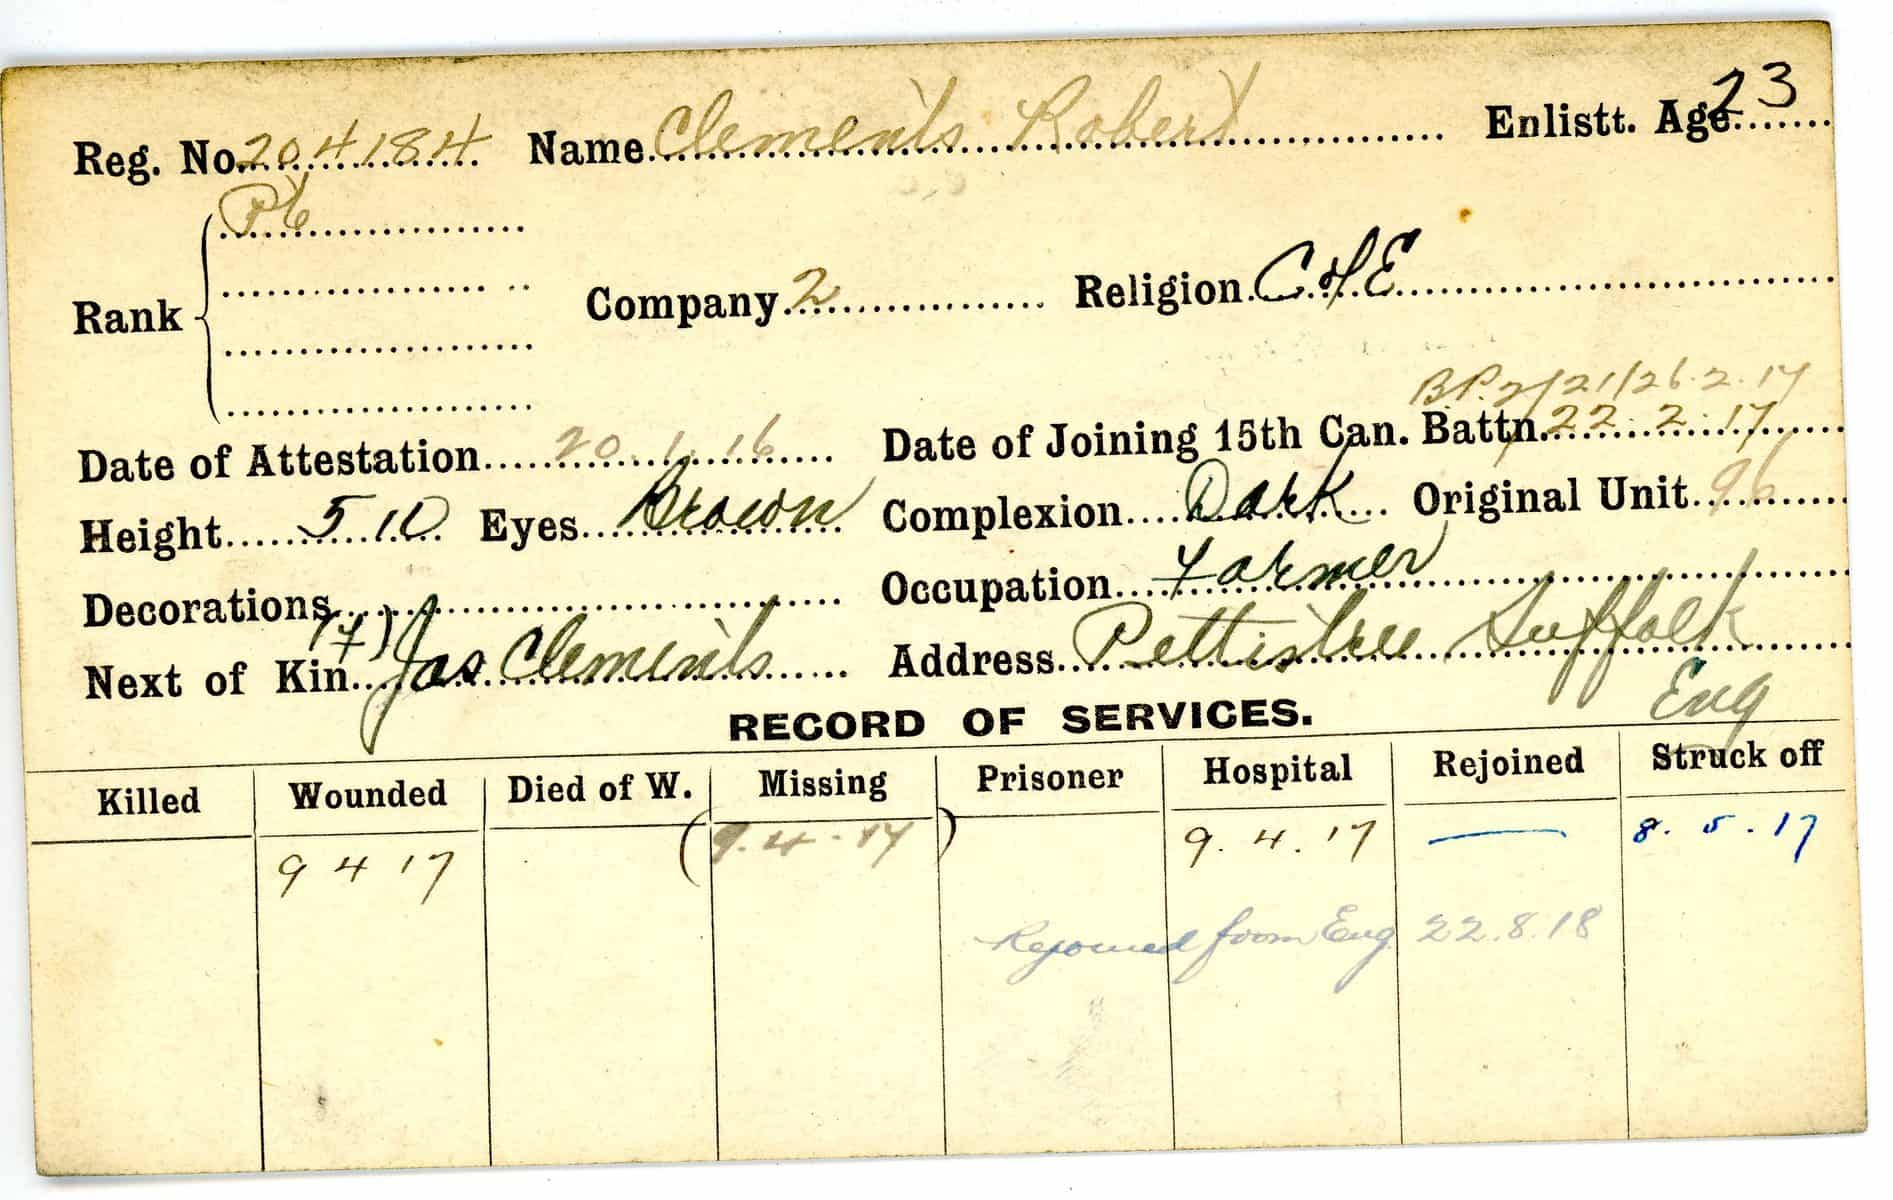 Reg. No. 204184 Name Clements Robert Enlistt. Age 23
Pte
Rank Company 2 Religion C of E
B.P.2/21/26.2.17
Date of Attestation 20.1.16 Date of Joining 15th Can. Battn. 22.2.17
Height 5 10 Eyes Brown Complexion Dark Original Unit 96
Decorations Occupation Farmer
Next of Kin (F) Jas Clements Address Pettistree Suffolk
Eng
RECORD OF SERVICES.
Killed Wounded Died of W. Missing Prisoner Hospital Rejoined Struck off
9 4 17 (9.4.17) 9.4.17 — 8.5.17
Rejoined from Eng 22.8.18